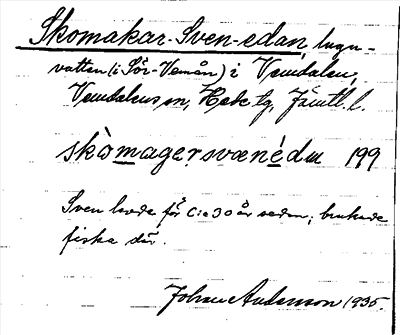 Skomakar-Sven-edan, lugn-
vatten (i Sör-Vemån) i Vemdalen,
Vemdalens sn, Hede tg, Jämtl. l.
skòmager₍svænédɯ 199
Sven levde för c:a 30 år sedan; brukade
fiska där.
Johan Andersson 1935.